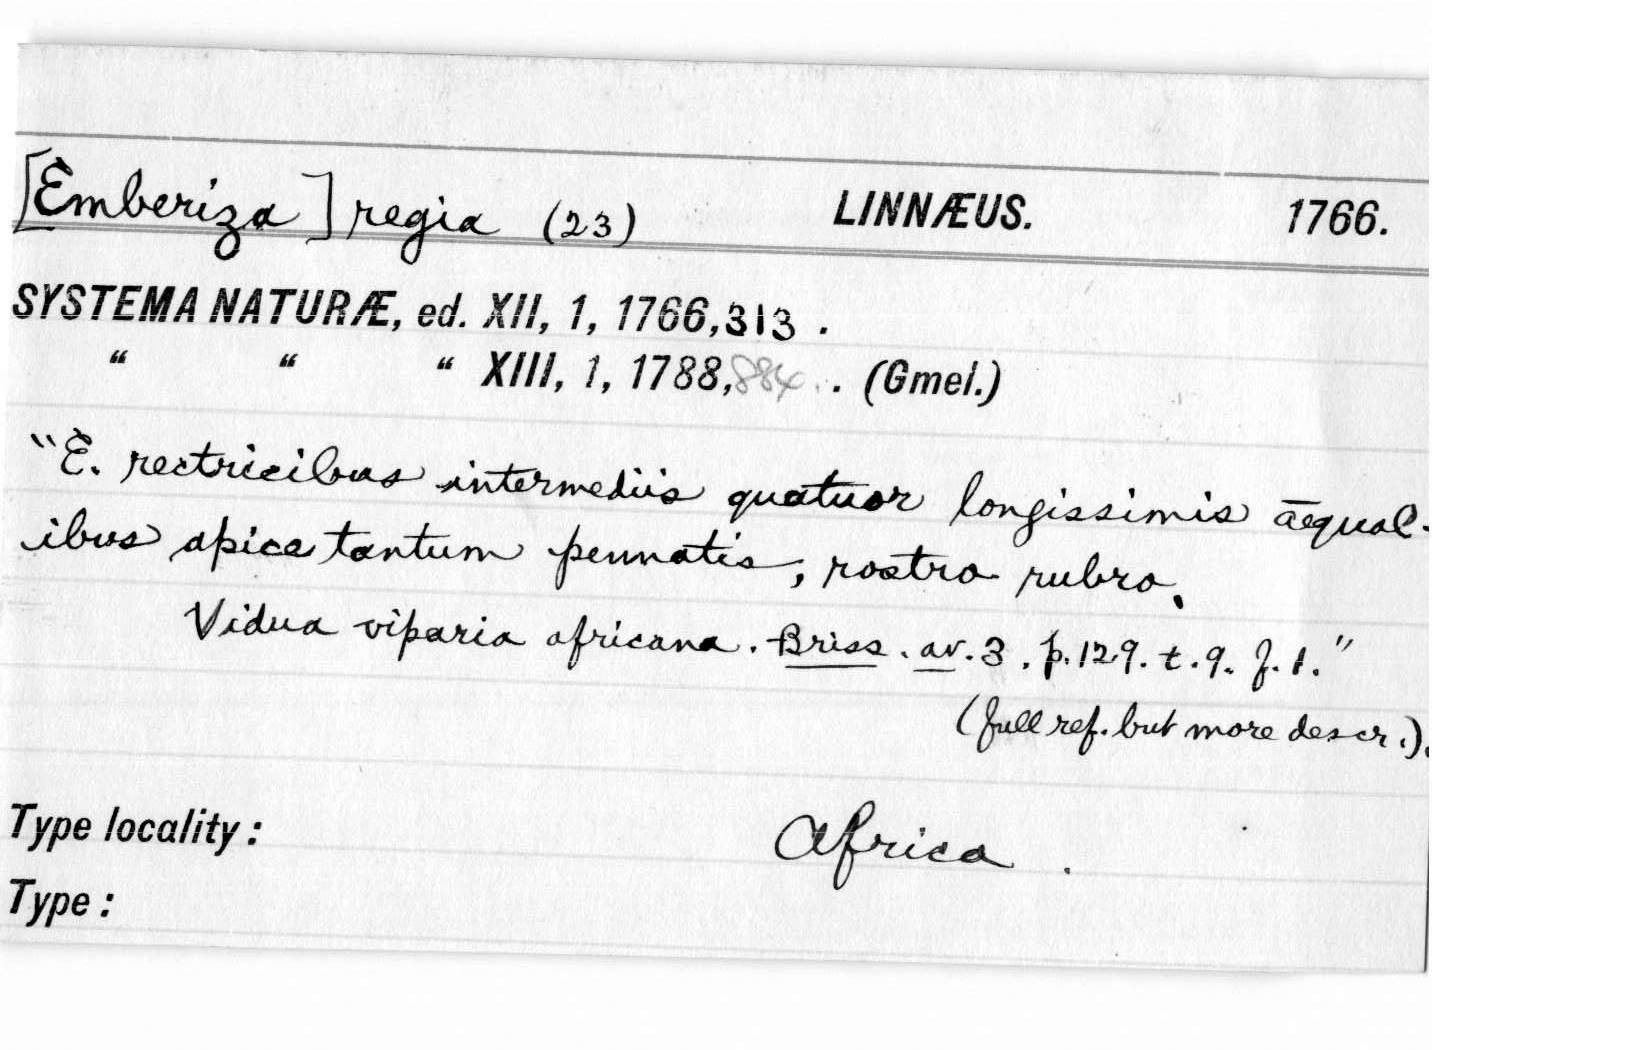 [Emberiza] regia (23) LINNÆUS. 1766.
SYSTEMA NATURÆ, ed. XII, 1, 1766, 313.
" " " XIII, 1, 1788, 884. . (Gmel.)
"E. rectricibus intermediis quatuor longissimis æqual-
ibus apice tantum pennatis, rostro rubro.
Vidua riparia africana. Briss. av. 3. p. 129. t. 9. f. 1."
(full ref. but more descr.).
Type locality: Africa.
Type: